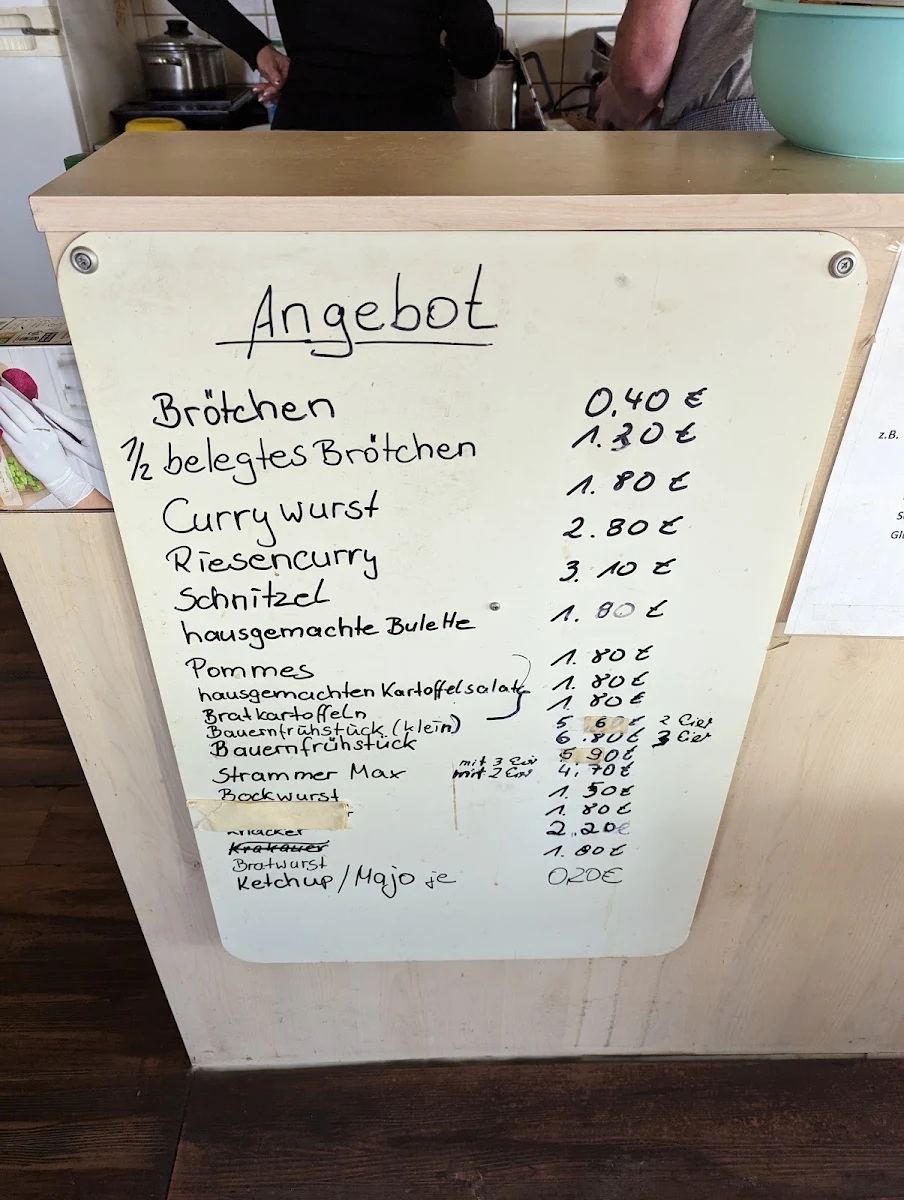 Angebot
Brötchen 0.40 €
1/2 belegtes Brötchen 1.30 €
Currywurst 1.80 €
Riesencurry 2.80 €
Schnitzel 3.10 €
hausgemachte Bulette 1.80 €
Pommes 1.80 €
hausgemachten Kartoffelsalat 1.80 €
Bratkartoffeln 1.80 €
Bauernfrühstück (klein) 5.60 € 2 Eier
Bauernfrühstück 6.80 € 3 Eier
mit 3 Eier 5.90 €
Strammer Max mit 2 Eier 4.70 €
Bockwurst 1.50 €
Knacker 1.80 €
Krakauer 2.20 €
Bratwurst 1.80 €
Ketchup/Majo je 020 €
z.B.